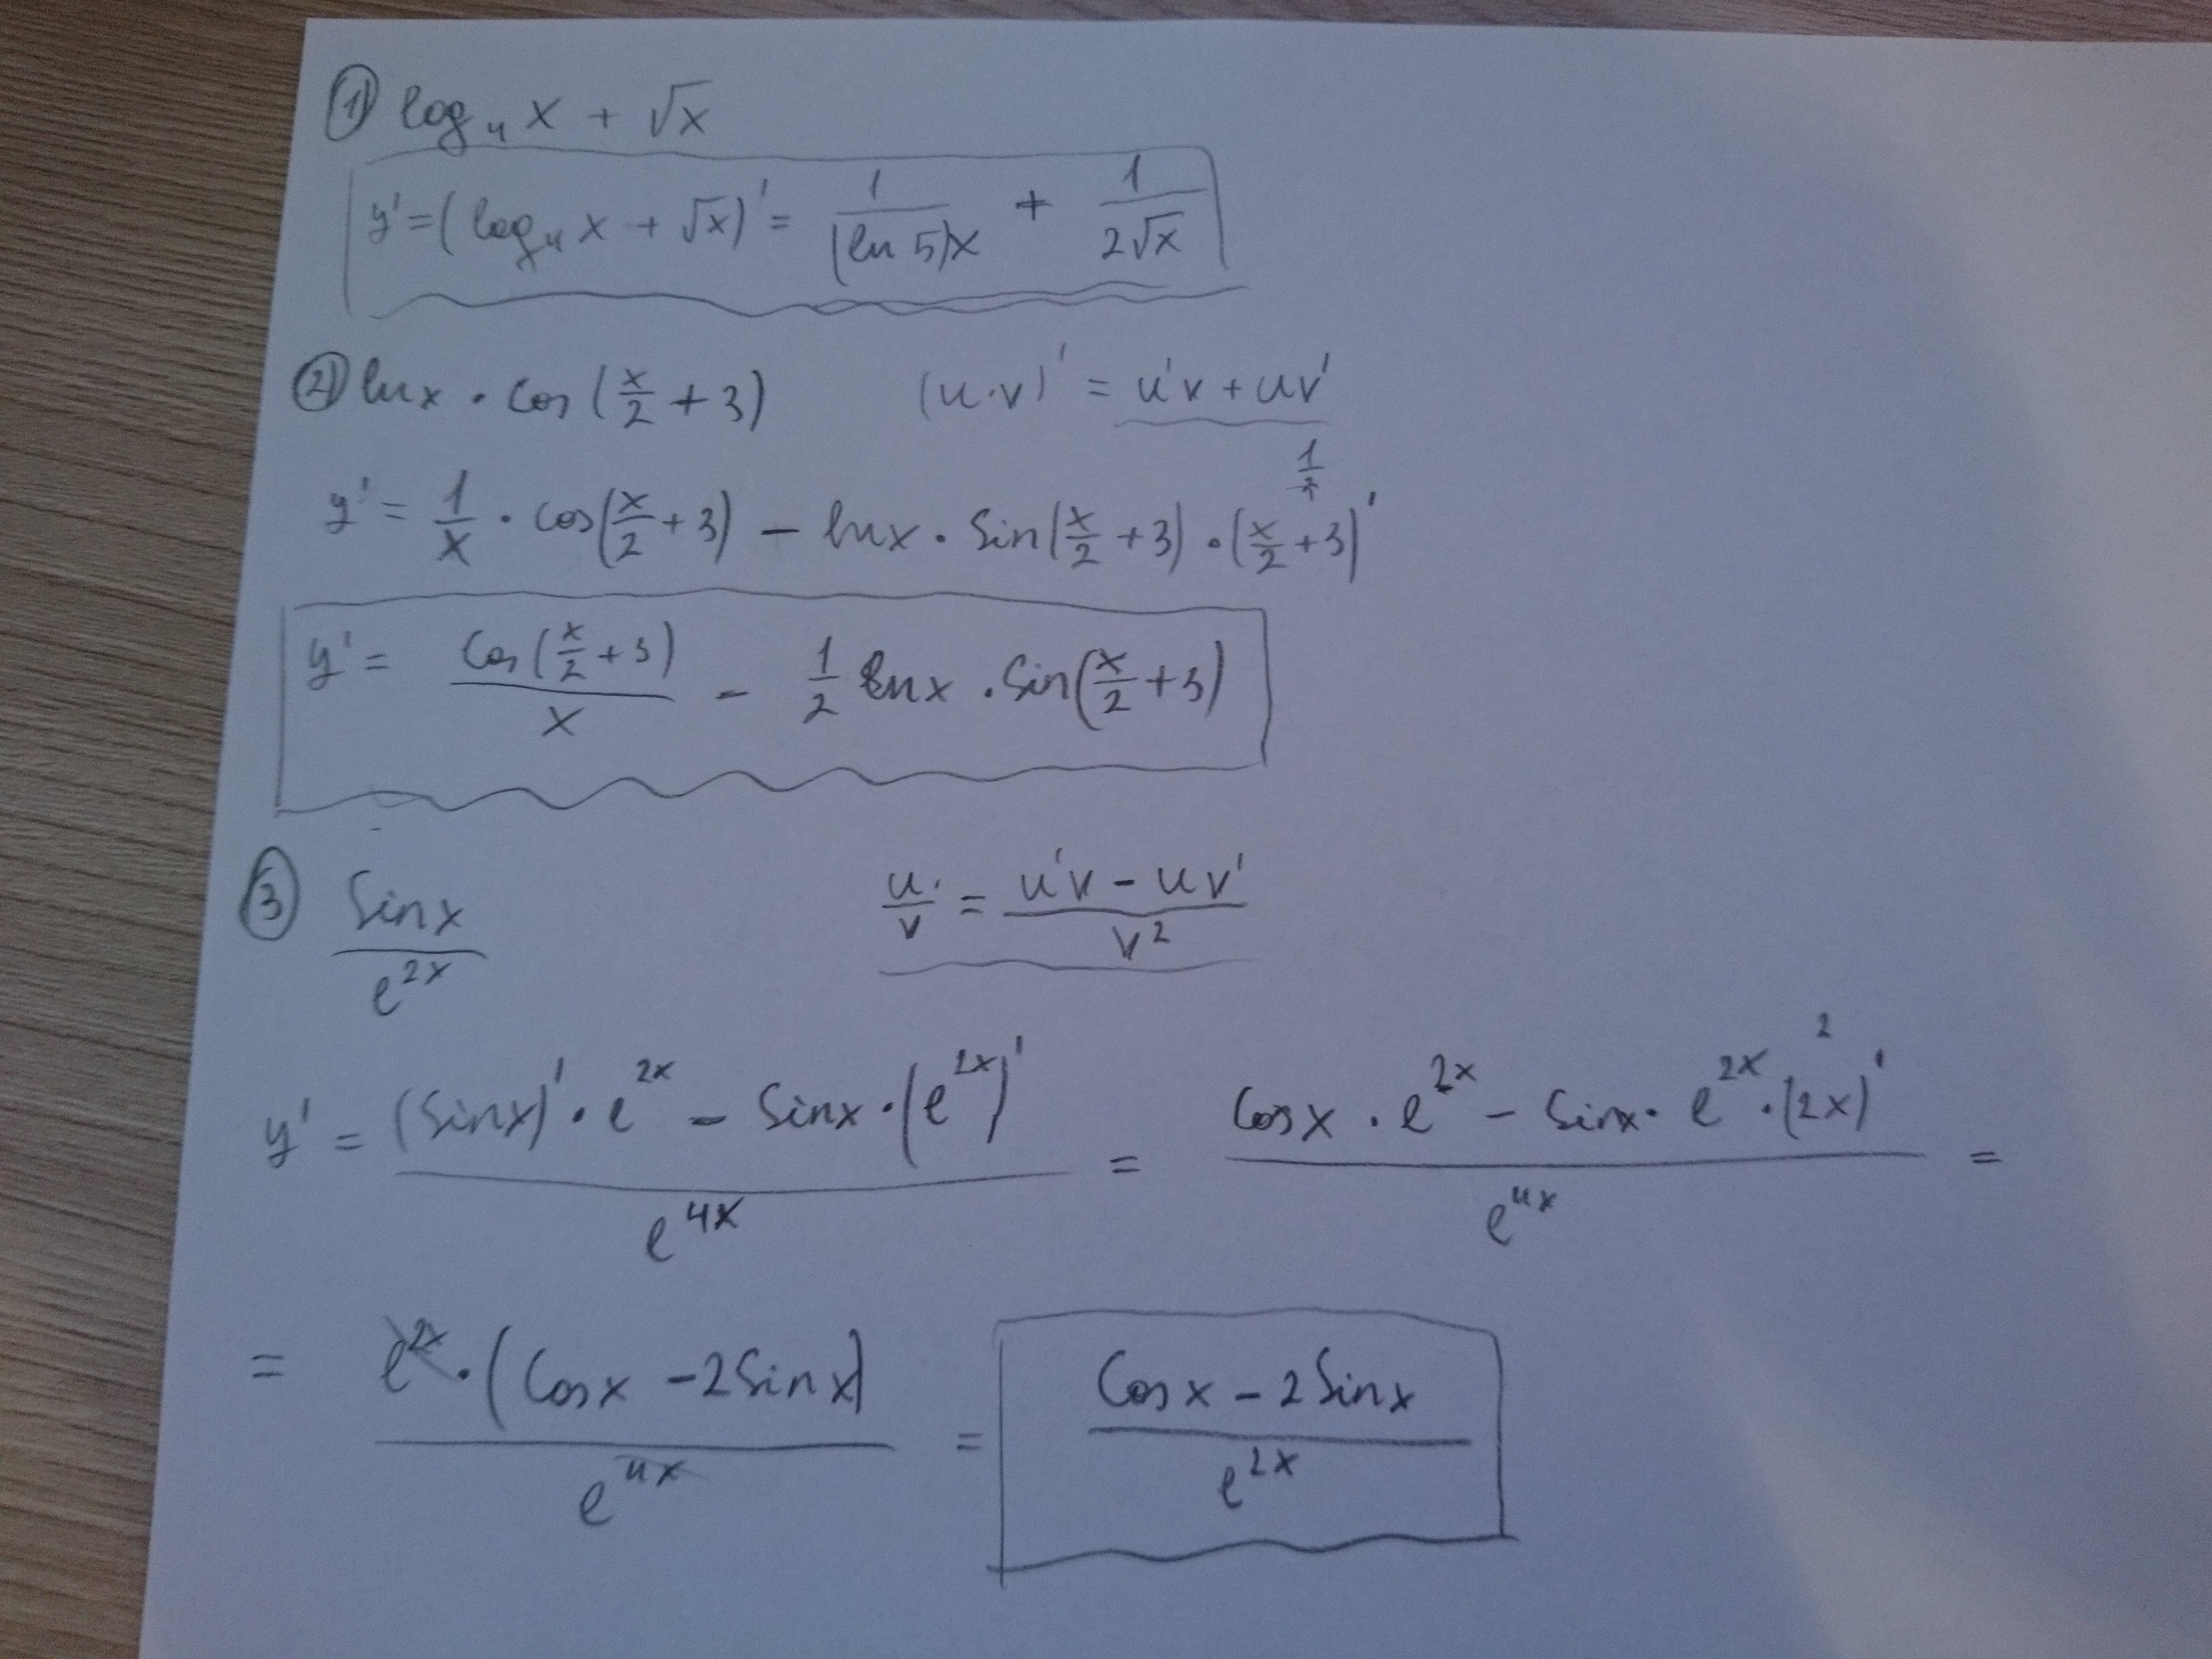 ① log₄ x + √x
y' = (log₄ x + √x)' = 1/((ln 5)x) + 1/(2√x)
② ln x · cos(x/2 + 3) (u·v)' = u'v + uv'
y' = 1/x · cos(x/2 + 3) − ln x · sin(x/2 + 3) · (x/2 + 3)'
y' = cos(x/2 + 3)/x − 1/2 ln x · sin(x/2 + 3)
③ sin x/e^(2x) u/v' = (u'v − uv')/v²
y' = ((sin x)' · e^(2x) − sin x · (e^(2x))')/e^(4x) = (cos x · e^(2x) − sin x · e^(2x) · (2x)' 2)/e^(4x) =
= e^(2x) · (cos x − 2 sin x)/e^(4x) = (cos x − 2 sin x)/e^(2x)